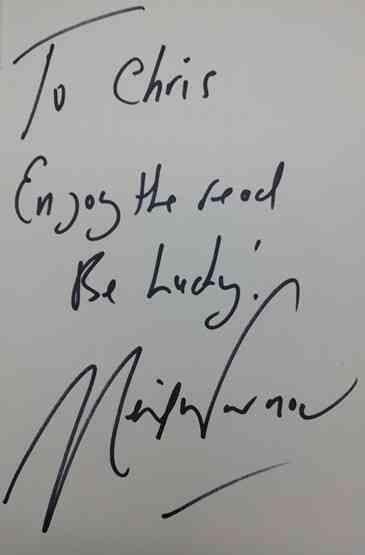 To Chris
Enjoy the read
Be Lucky!
Neil Warnock